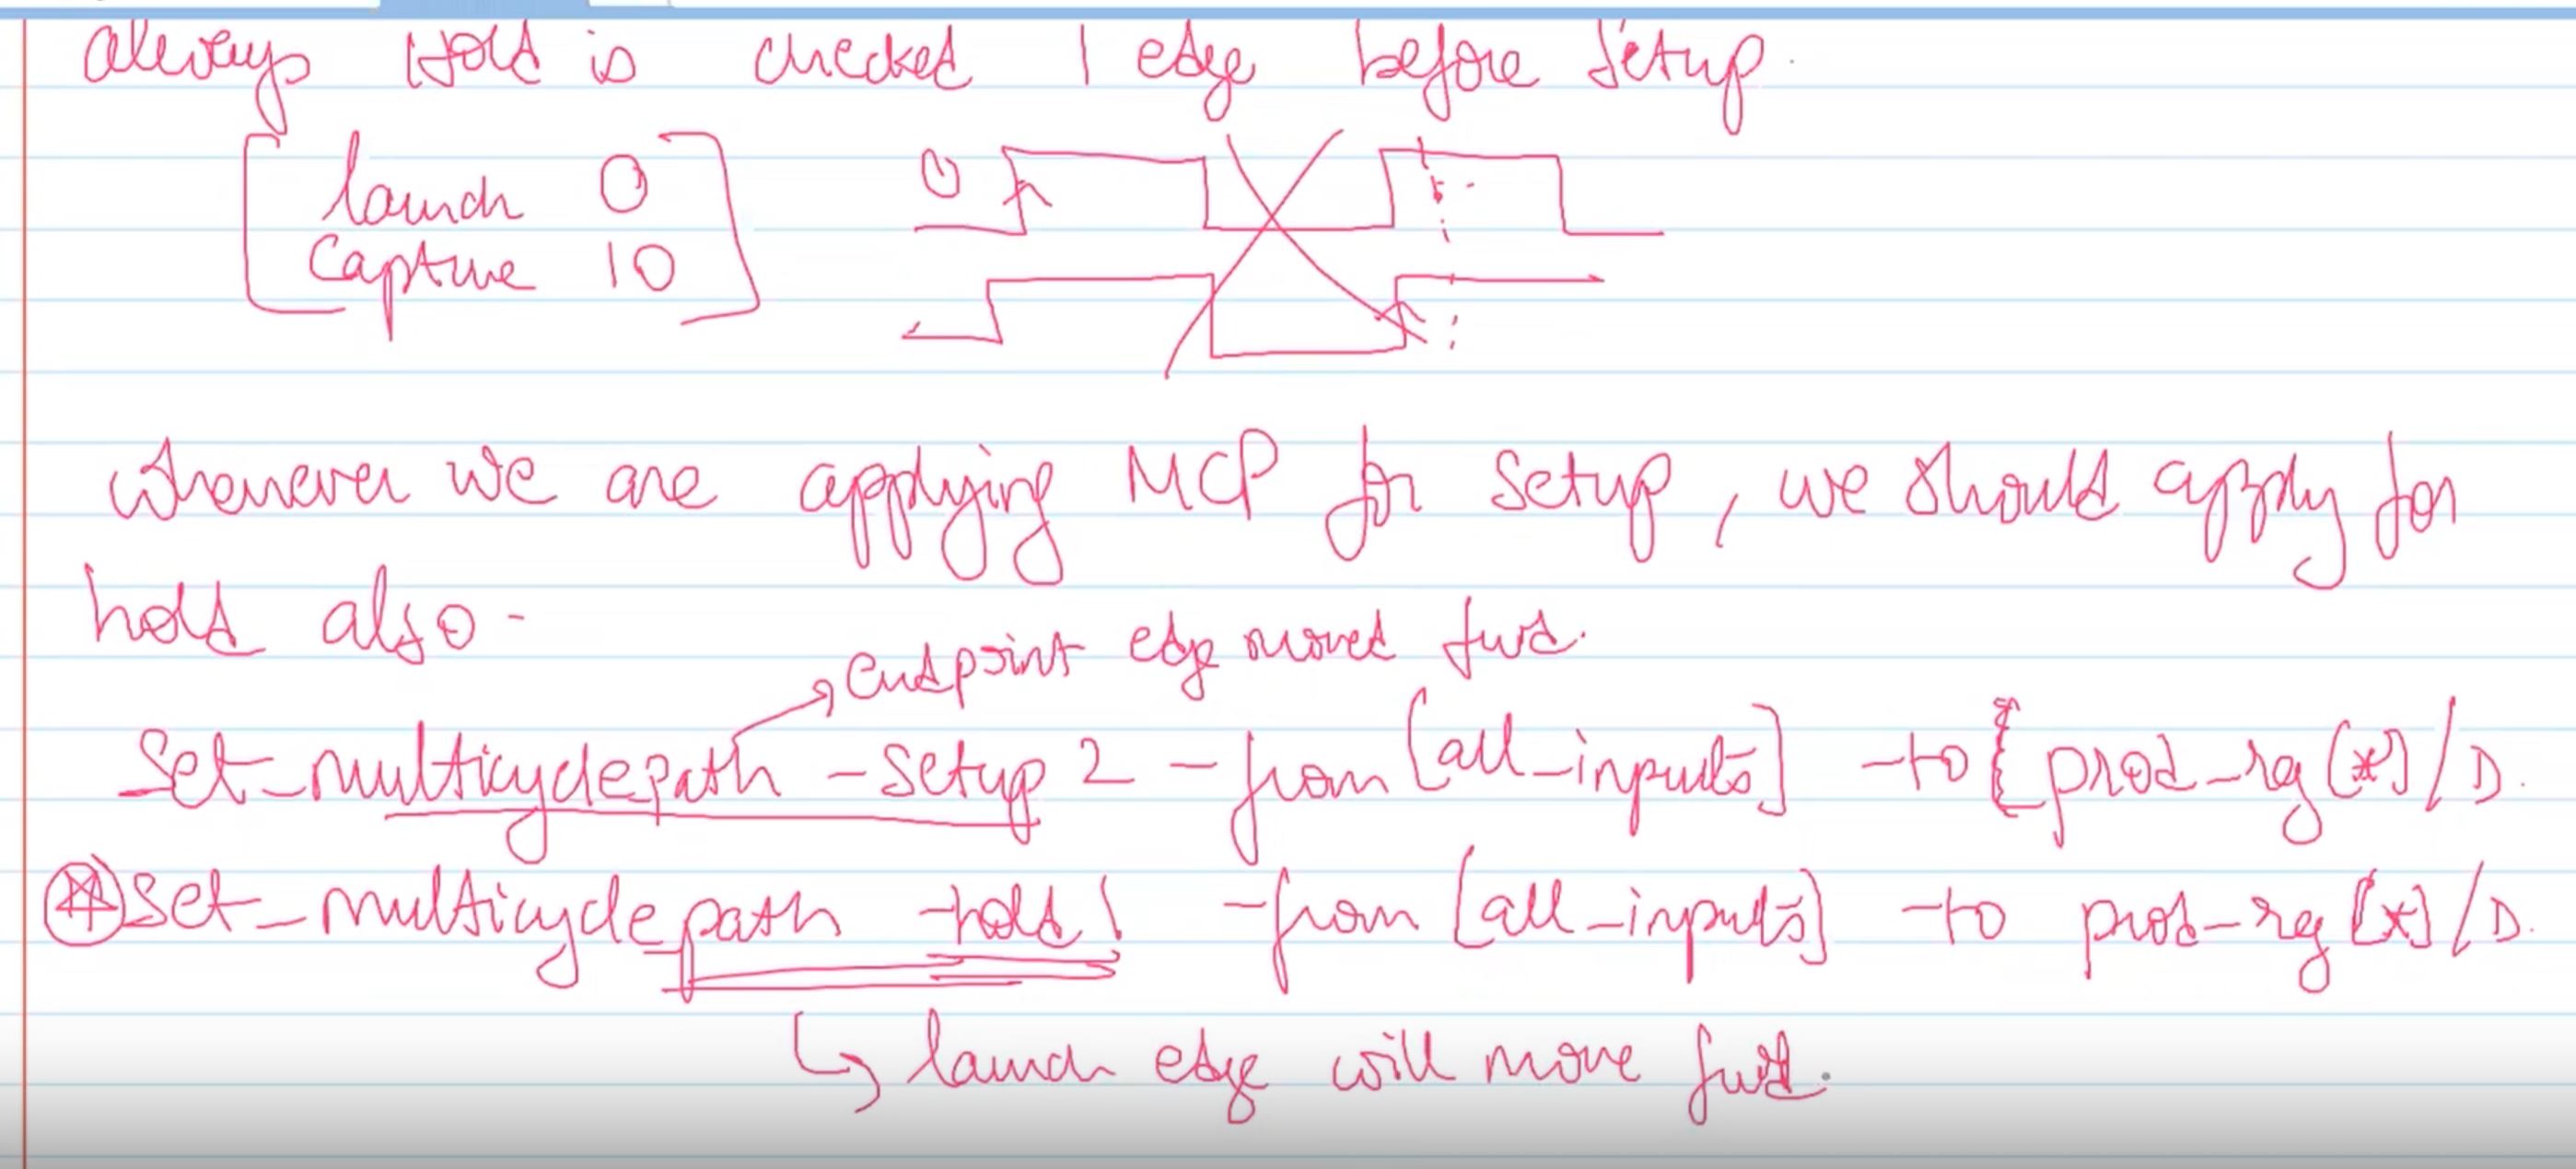 always Hold is checked 1 edge before setup.
launch 0
Capture 10
0
whenever we are applying MCP for setup, we should apply for
hold also -
endpoint edge moved fwd.
Set_multicyclepath -setup 2 -from [all_inputs] -to [prod_reg(*)/D.
set_multicyclepath -hold 1 -from [all_inputs] -to prod_reg[*]/D.
launch edge will move fwd.